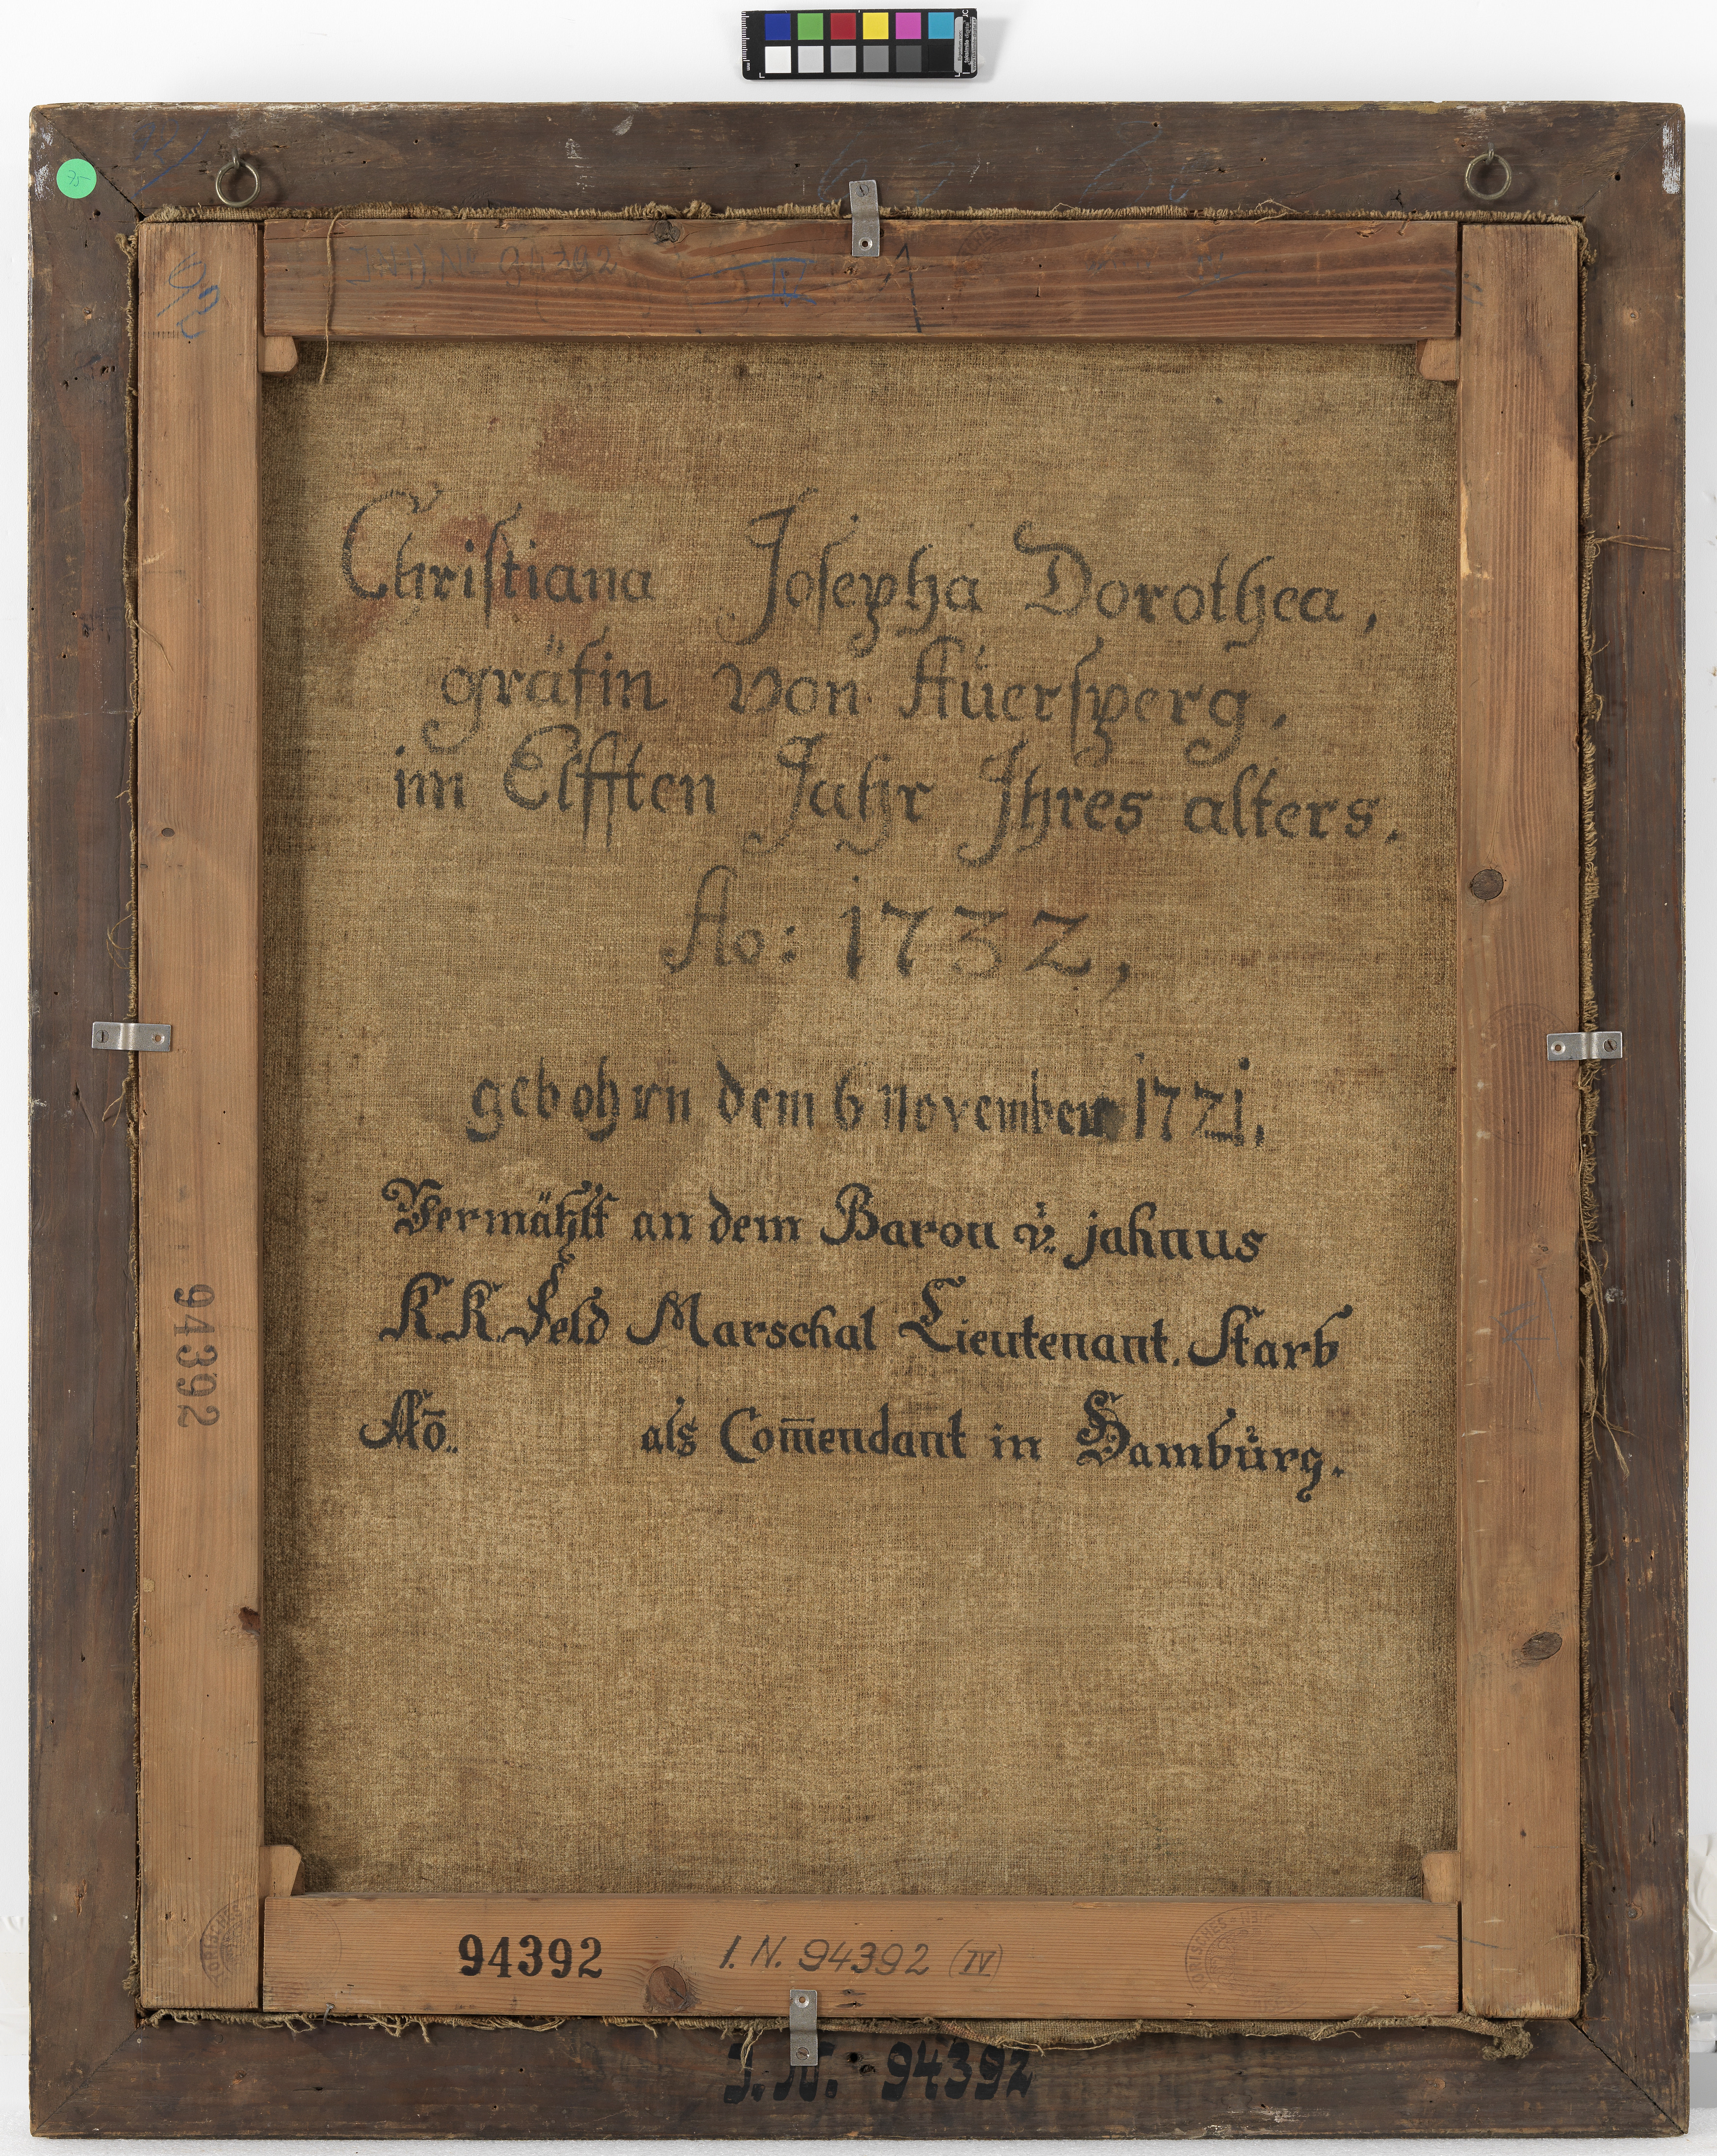 75
92
IV
A
Chriſtiana Joſepha Dorothea,
gräfin von Aüerſperg.
im Elfften Jahr Jhres alters.
Ao: 1732,
gebohren dem 6 November 1721.
Vermählt an dem Baron v: jahnus
K.K. Feld Marschal Lieutenant. Starb
Aō.. als Com̄endant in Hambůrg.
94392
94392 I.N. 94392 (IV)
J.N. 94392